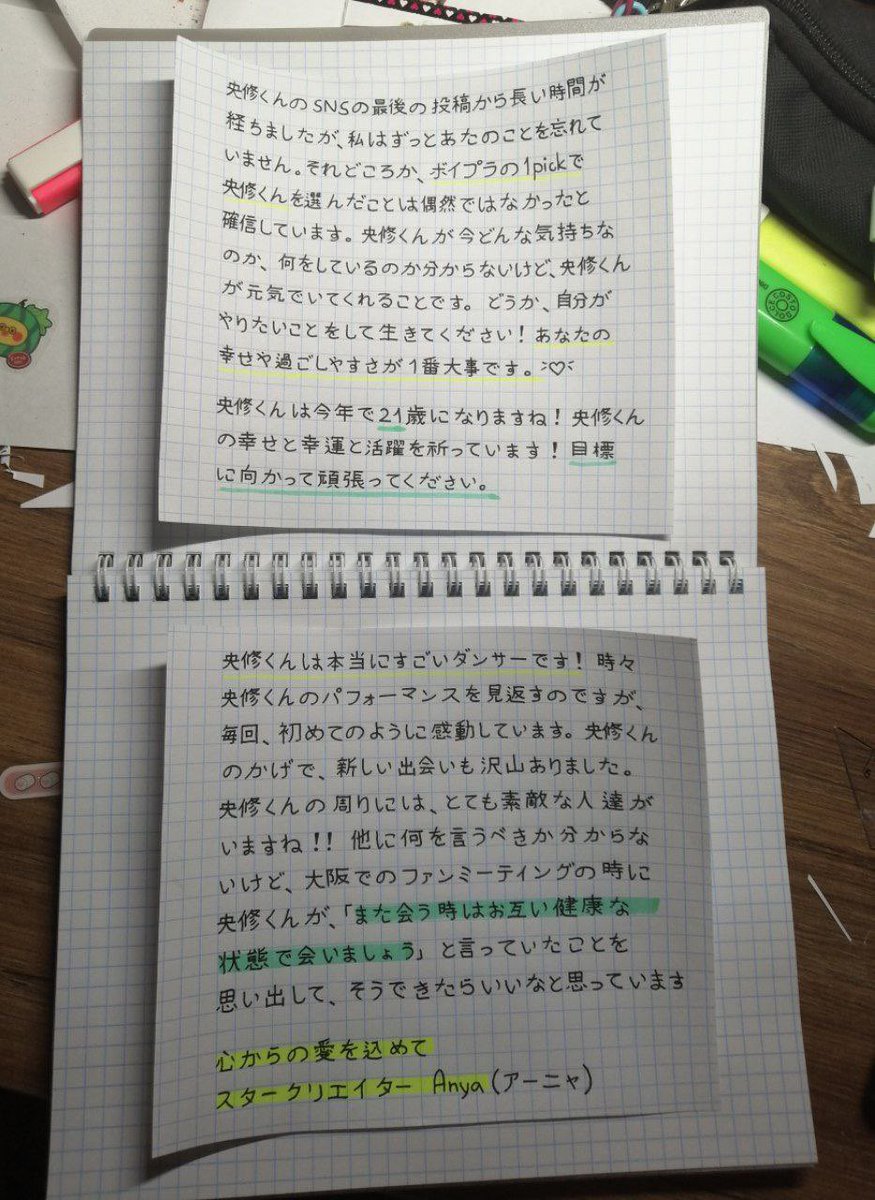 央修くんのSNSの最後の投稿から長い時間が
経ちましたが、私はずっとあたのことを忘れて
いません。それどころか、ボイプラの1pickで
央修くんを選んだことは偶然ではなかったと
確信しています。央修くんが今どんな気持ちな
のか、何をしているのか分からないけど、央修くん
が元気でいてくれることです。どうか、自分が
やりたいことをして生きてください！あなたの
幸せや過ごしやすさが1番大事です。♡
央修くんは今年で21歳になりますね！央修くん
の幸せと幸運と活躍を祈っています！目標
に向かって頑張ってください。
央修くんは本当にすごいダンサーです！時々
央修くんのパフォーマンスを見返すのですが、
毎回、初めてのように感動しています。央修くん
のかげで、新しい出会いも沢山ありました。
央修くんの周りには、とても素敵な人達が
いますね!! 他に何を言うべきか分からな
いけど、大阪でのファンミーティングの時に
央修くんが、「また会う時はお互い健康な
状態で会いましょう」と言っていたことを
思い出して、そうできたらいいなと思っています
心からの愛を込めて
スタークリエイター Anya(アーニャ)